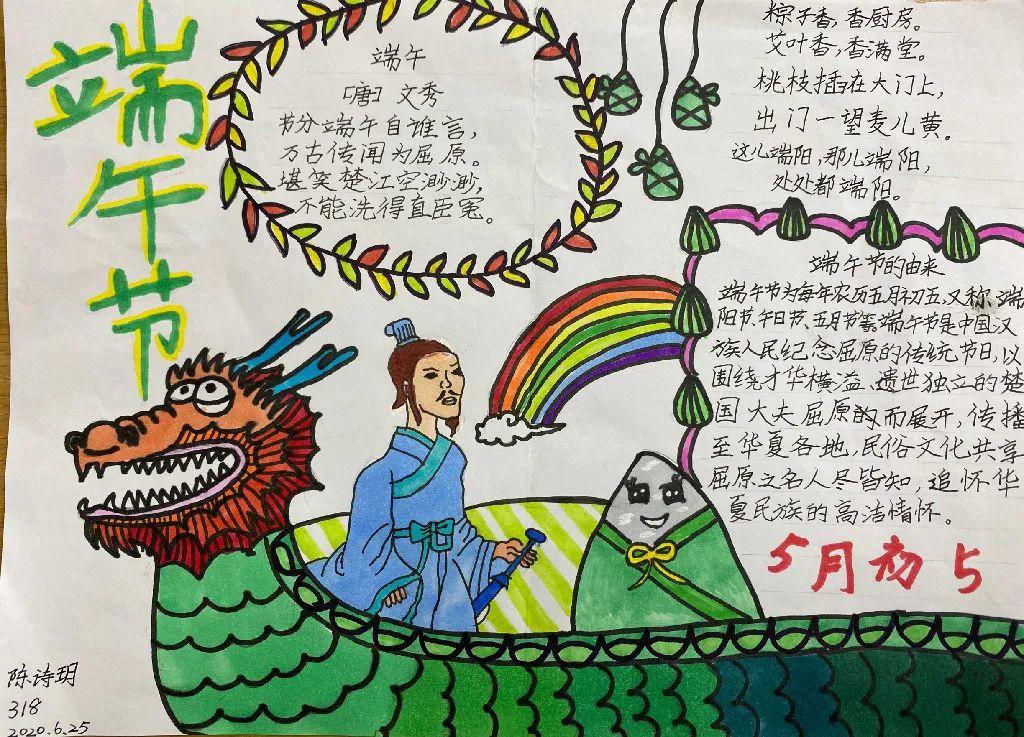 端午节
端午
[唐] 文秀
节分端午自谁言,
万古传闻为屈原。
堪笑楚江空渺渺,
不能洗得直臣冤。
粽子香,香厨房。
艾叶香,香满堂。
桃枝插在大门上,
出门一望麦儿黄。
这儿端阳,那儿端阳,
处处都端阳。
端午节的由来
端午节为每年农历五月初五,又称端
阳节、午日节、五月节等。端午节是中国汉
族人民纪念屈原的传统节日,以
围绕才华横溢、遗世独立的楚
国大夫屈原的而展开,传播
至华夏各地,民俗文化共享
屈原之名人尽皆知,追怀华
夏民族的高洁情怀。
5月初5
陈诗玥
318
2020.6.25